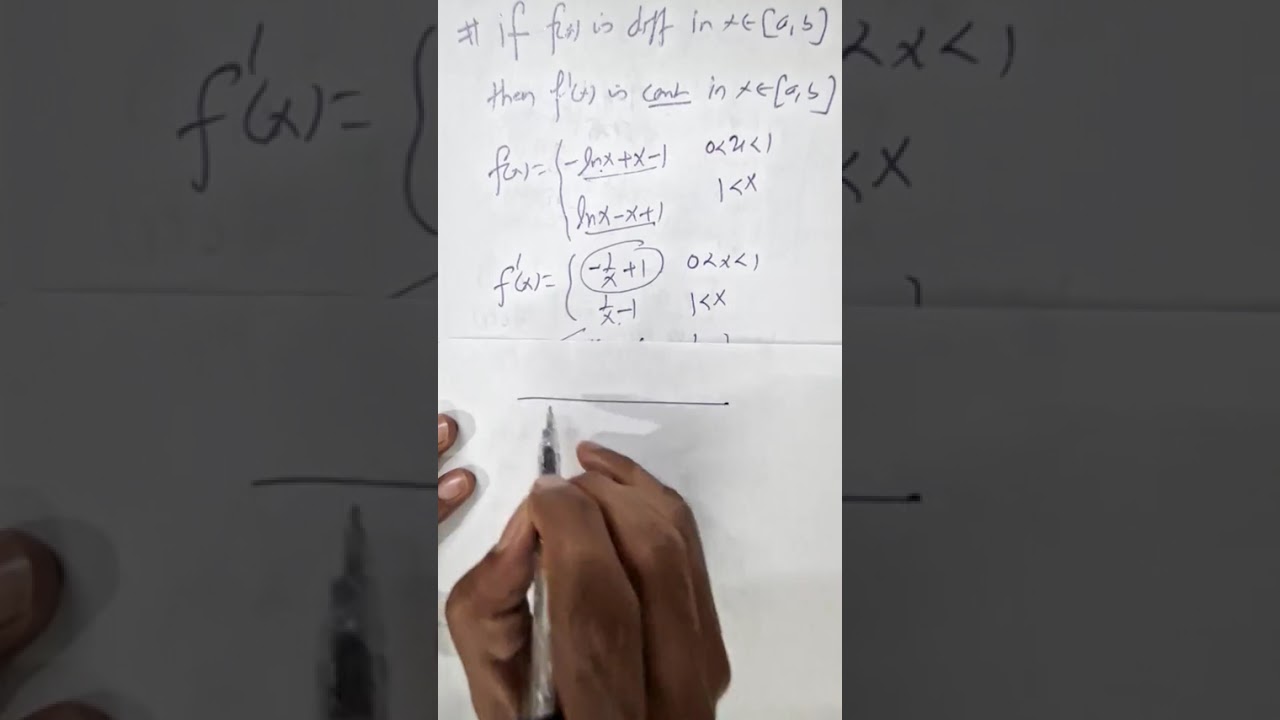 # if f(x) is diff in x∈[a,b]
then f'(x) is cont in x∈[a,b]
f(x)= { -lnx+x-1 0<x<1
lnx-x+1 1<x
f'(x)= { -1/x+1 0<x<1
1/x-1 1<x